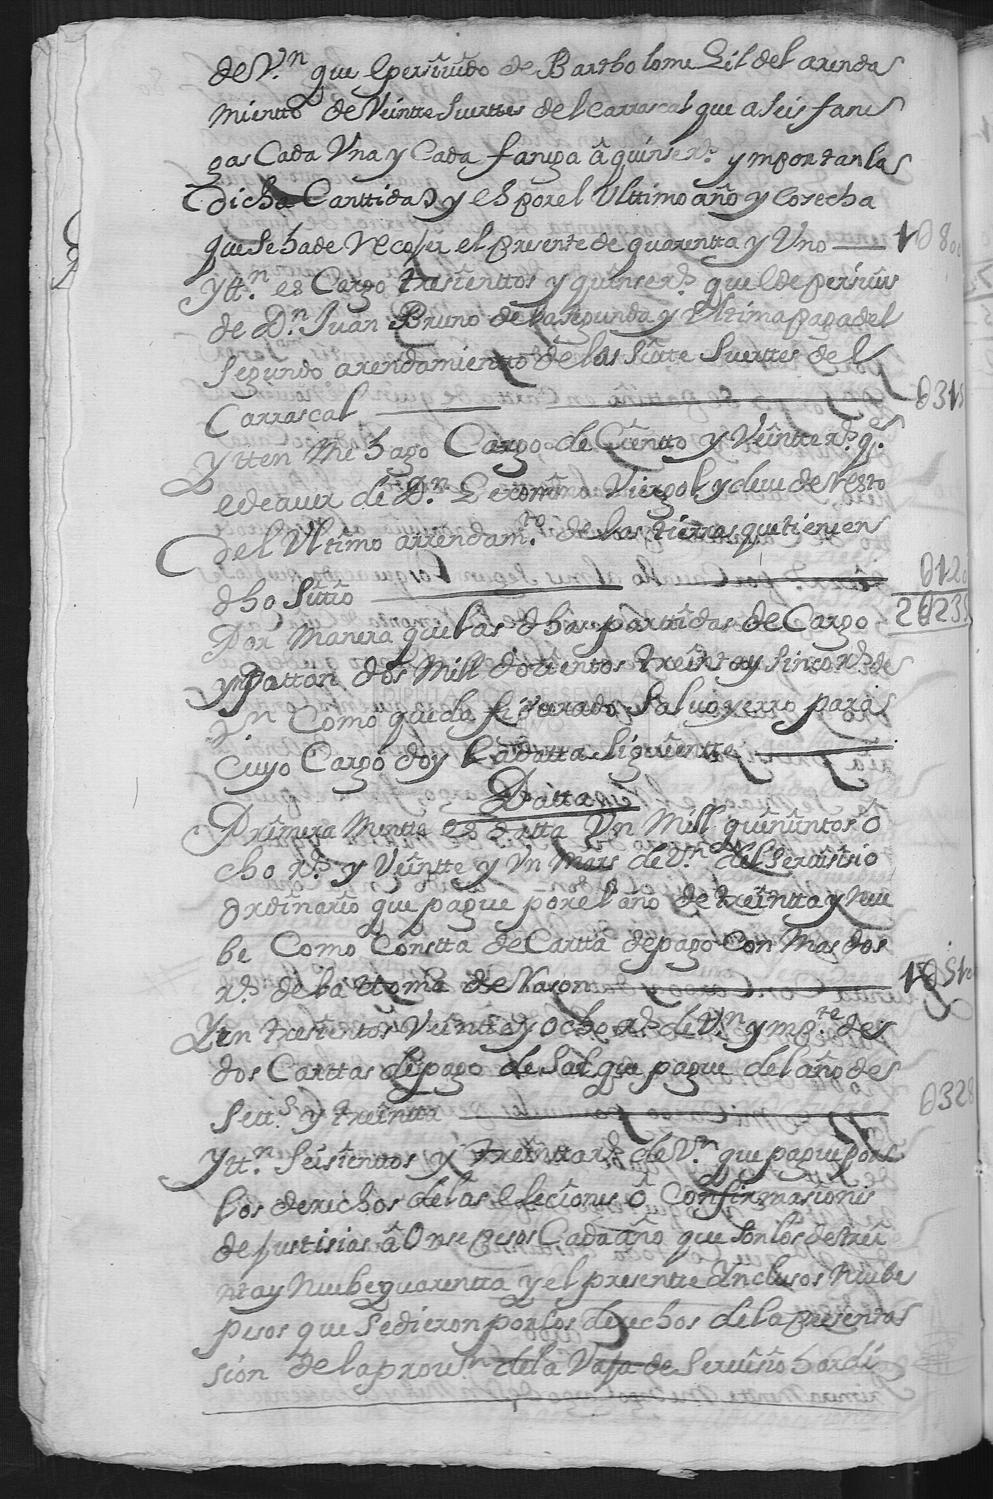 de V.n que e persivido de Bartholome Gil del arenda
miento de Veintte Suerttes del Carrascal que a seis fane
gas Cada Una y Cada fanega â quinse r.s ymportan las
dicha Canttidad y es por el Ulttimo año y Cosecha
que se ha de Recojer el presente de quarentta y Uno — 1080
Ytt.n es Cargo tresienttos y quinse r.s que e de persivir
de D.n Juan Bruno de la segunda y Ultima paga del
Segundo arendamientto de las Siette Suerttes del
Carrascal — 0315
Ytten me hago Cargo de Cientto y Veintte r.s q.e
e de aver de D.n Geronimo Virgol y deve de Resto
del Ultimo arrendam.to de las tierras que tiene en
dho Sittio — 0120
2U235
Por Manera que las dhas parttidas de Cargo
ymPorttan dos Mill dosientos treinta y sinco r.s de
V.n Como queda figurado Salvo yerro para
Cuyo Cargo doy la datta siguientte
Datta
Primera Mentte es datta Un Mill quinientos o
cho r.s y Veintte y Un mars de V.n del Servisio
ordinario que pague por el año de treintta y nue
be Como Constta de Cartta de pago Con mas dos
r.s de la ttoma de Rason — 1U510
Ytten tresientos Veintta y ocho r.s de V.n ymp.te de
dos Carttas de pago de Sal que pague del año de
Sett.s y treintta — 0328
Ytt.n Seisienttos y treintta r.s de V.n que pague por
los derechos de las elecsiones o Confirmasiones
de justisias â Onse pesos Cada año que son los de trei
nta y Nuebe quarentta y el presente Ynclusos nuebe
pesos que se dieron por los derechos de la presenta
sion de la prov.n de la Vaja de Servisio hordi